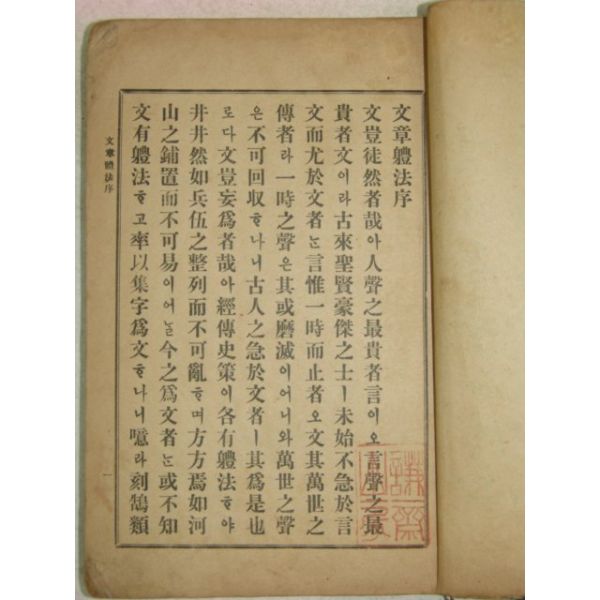 文章軆法序
文豈徒然者哉아人聲之最貴者言이오言聲之最
貴者文이라古來聖賢豪傑之士ㅣ未始不急於言
文而尤於文者ᄂᆞᆫ言惟一時而止者오文其萬世之
傳者라一時之聲은其或磨滅이어니와萬世之聲
은不可回收ᄒᆞ나니古人之急於文者ㅣ其爲是也
로다文豈妄爲者哉아經傳史策이各有軆法ᄒᆞ야
井井然如兵伍之整列而不可亂ᄒᆞ며方方焉如河
山之鋪置而不可易이어ᄂᆞᆯ今之爲文者ᄂᆞᆫ或不知
文有軆法ᄒᆞ고率以集字爲文ᄒᆞ나니噫라刻鵠類
文章體法序
一